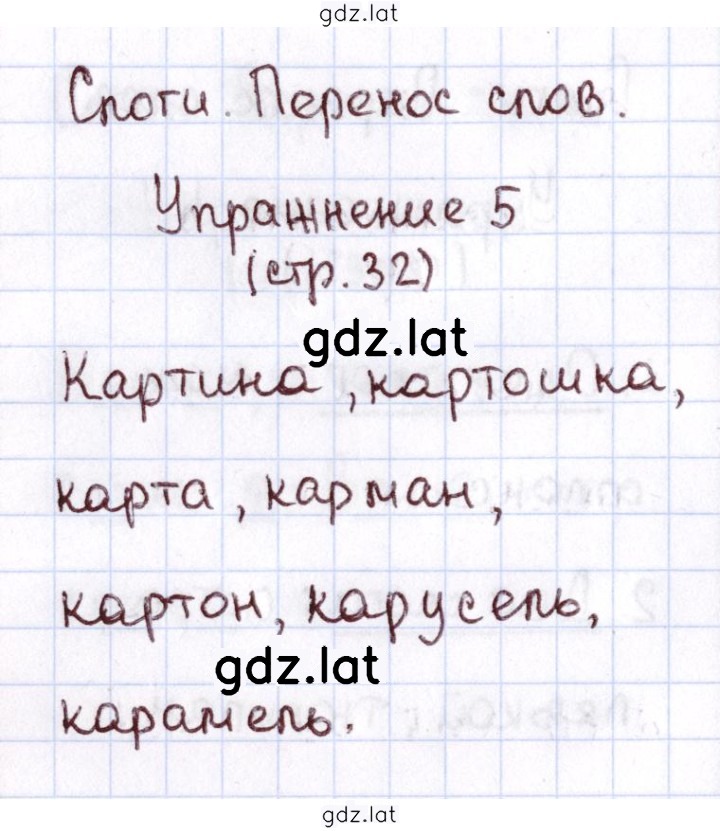 gdz.lat
Слоги. Перенос слов.
Упражнение 5
(стр. 32)
gdz.lat
Картина, картошка,
карта, карман,
картон, карусель,
gdz.lat
карамель.
gdz.lat